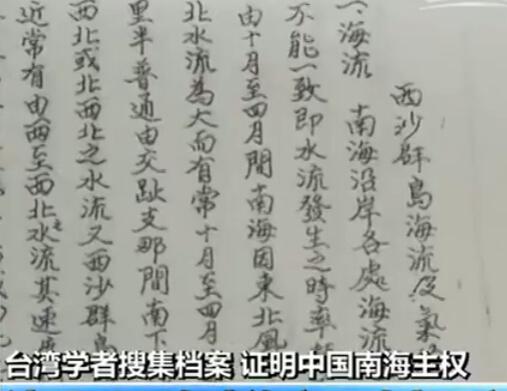 西沙群島海流及氣
一、海流 南海沿岸各處海流
不能一致即水流發生之時率
由十月至四月間南海因東北風
北水流為大而有常十月至四月
里半普通由交趾支那間南下
西北或北西北之水流又西沙群島
近常有由西至西北之水流其速
台湾学者搜集档案 证明中国南海主权